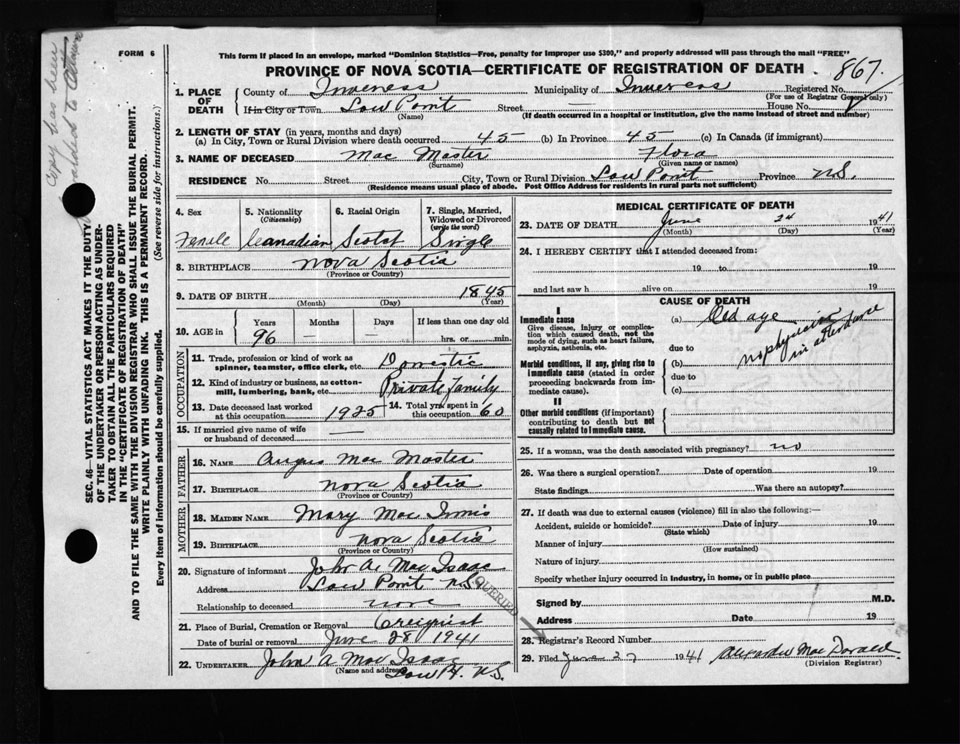 Copy has been
FORM 6
This form if placed in an envelope, marked "Dominion Statistics—Free, penalty for improper use $300," and properly addressed will pass through the mail "FREE"
PROVINCE OF NOVA SCOTIA—CERTIFICATE OF REGISTRATION OF DEATH
867
1. PLACE OF DEATH
County of Inverness Municipality of Inverness Registered No.
(For use of Registrar General only)
If in City or Town Low Point Street — House No.
(Name) (If death occurred in a hospital or institution, give the name instead of street and number)
2. LENGTH OF STAY (in years, months and days)
(a) In City, Town or Rural Division where death occurred 45 (b) In Province 45 (c) In Canada (if immigrant)
3. NAME OF DECEASED Mac Master Flora
(Surname) (Given name or names)
RESIDENCE No. Street City, Town or Rural Division Low Point Province N.S.
(Residence means usual place of abode. Post Office Address for residents in rural parts not sufficient)
SEC. 46—VITAL STATISTICS ACT MAKES IT THE DUTY
OF THE UNDERTAKER OR PERSON ACTING AS UNDER-
TAKER TO OBTAIN ALL THE PARTICULARS REQUIRED
IN THE "CERTIFICATE OF REGISTRATION OF DEATH"
AND TO FILE THE SAME WITH THE DIVISION REGISTRAR WHO SHALL ISSUE THE BURIAL PERMIT.
WRITE PLAINLY WITH UNFADING INK. THIS IS A PERMANENT RECORD.
Every item of information should be carefully supplied. (See reverse side for instructions.)
4. Sex Female
5. Nationality (Citizenship) Canadian
6. Racial Origin Scotch
7. Single, Married, Widowed or Divorced (write the word) Single
8. BIRTHPLACE Nova Scotia
(Province or Country)
9. DATE OF BIRTH 1845
(Month) (Day) (Year)
10. AGE in Years Months Days If less than one day old
96 hrs. or min.
OCCUPATION
11. Trade, profession or kind of work as spinner, teamster, office clerk, etc. Domestic
12. Kind of industry or business, as cotton-mill, lumbering, bank, etc. Private family
13. Date deceased last worked at this occupation 1925 14. Total yrs. spent in this occupation 60
15. If married give name of wife or husband of deceased —
FATHER
16. NAME Angus Mac Master
17. BIRTHPLACE Nova Scotia
(Province or Country)
MOTHER
18. MAIDEN NAME Mary Mac Innis
19. BIRTHPLACE Nova Scotia
(Province or Country)
20. Signature of informant John A. Mac Isaac
Address Low Point N.S.
Relationship to deceased none
QUERIED
21. Place of Burial, Cremation or Removal Creignish
Date of burial or removal June 28 1941
22. UNDERTAKER John A Mac Isaac
(Name and address) Low Pt. N.S.
MEDICAL CERTIFICATE OF DEATH
23. DATE OF DEATH June 24 1941
(Month) (Day) (Year)
24. I HEREBY CERTIFY that I attended deceased from:
19 to 19
and last saw h alive on 19
CAUSE OF DEATH
I
Immediate cause
Give disease, injury or complication which caused death, not the mode of dying, such as heart failure, asphyxia, asthenia, etc.
(a) Old age
due to
Morbid conditions, if any, giving rise to immediate cause (stated in order proceeding backwards from immediate cause).
(b)
due to
(c)
no physician
in attendance
II
Other morbid conditions (if important) contributing to death but not causally related to immediate cause.
25. If a woman, was the death associated with pregnancy? no
26. Was there a surgical operation? Date of operation 194
State findings Was there an autopsy?
27. If death was due to external causes (violence) fill in also the following:—
Accident, suicide or homicide? Date of injury 19
(State which)
Manner of injury
(How sustained)
Nature of injury
Specify whether injury occurred in industry, in home, or in public place
Signed by M.D.
Address Date 19
28. Registrar's Record Number
29. Filed June 27 1941 Alexander Mac Donald
(Division Registrar)